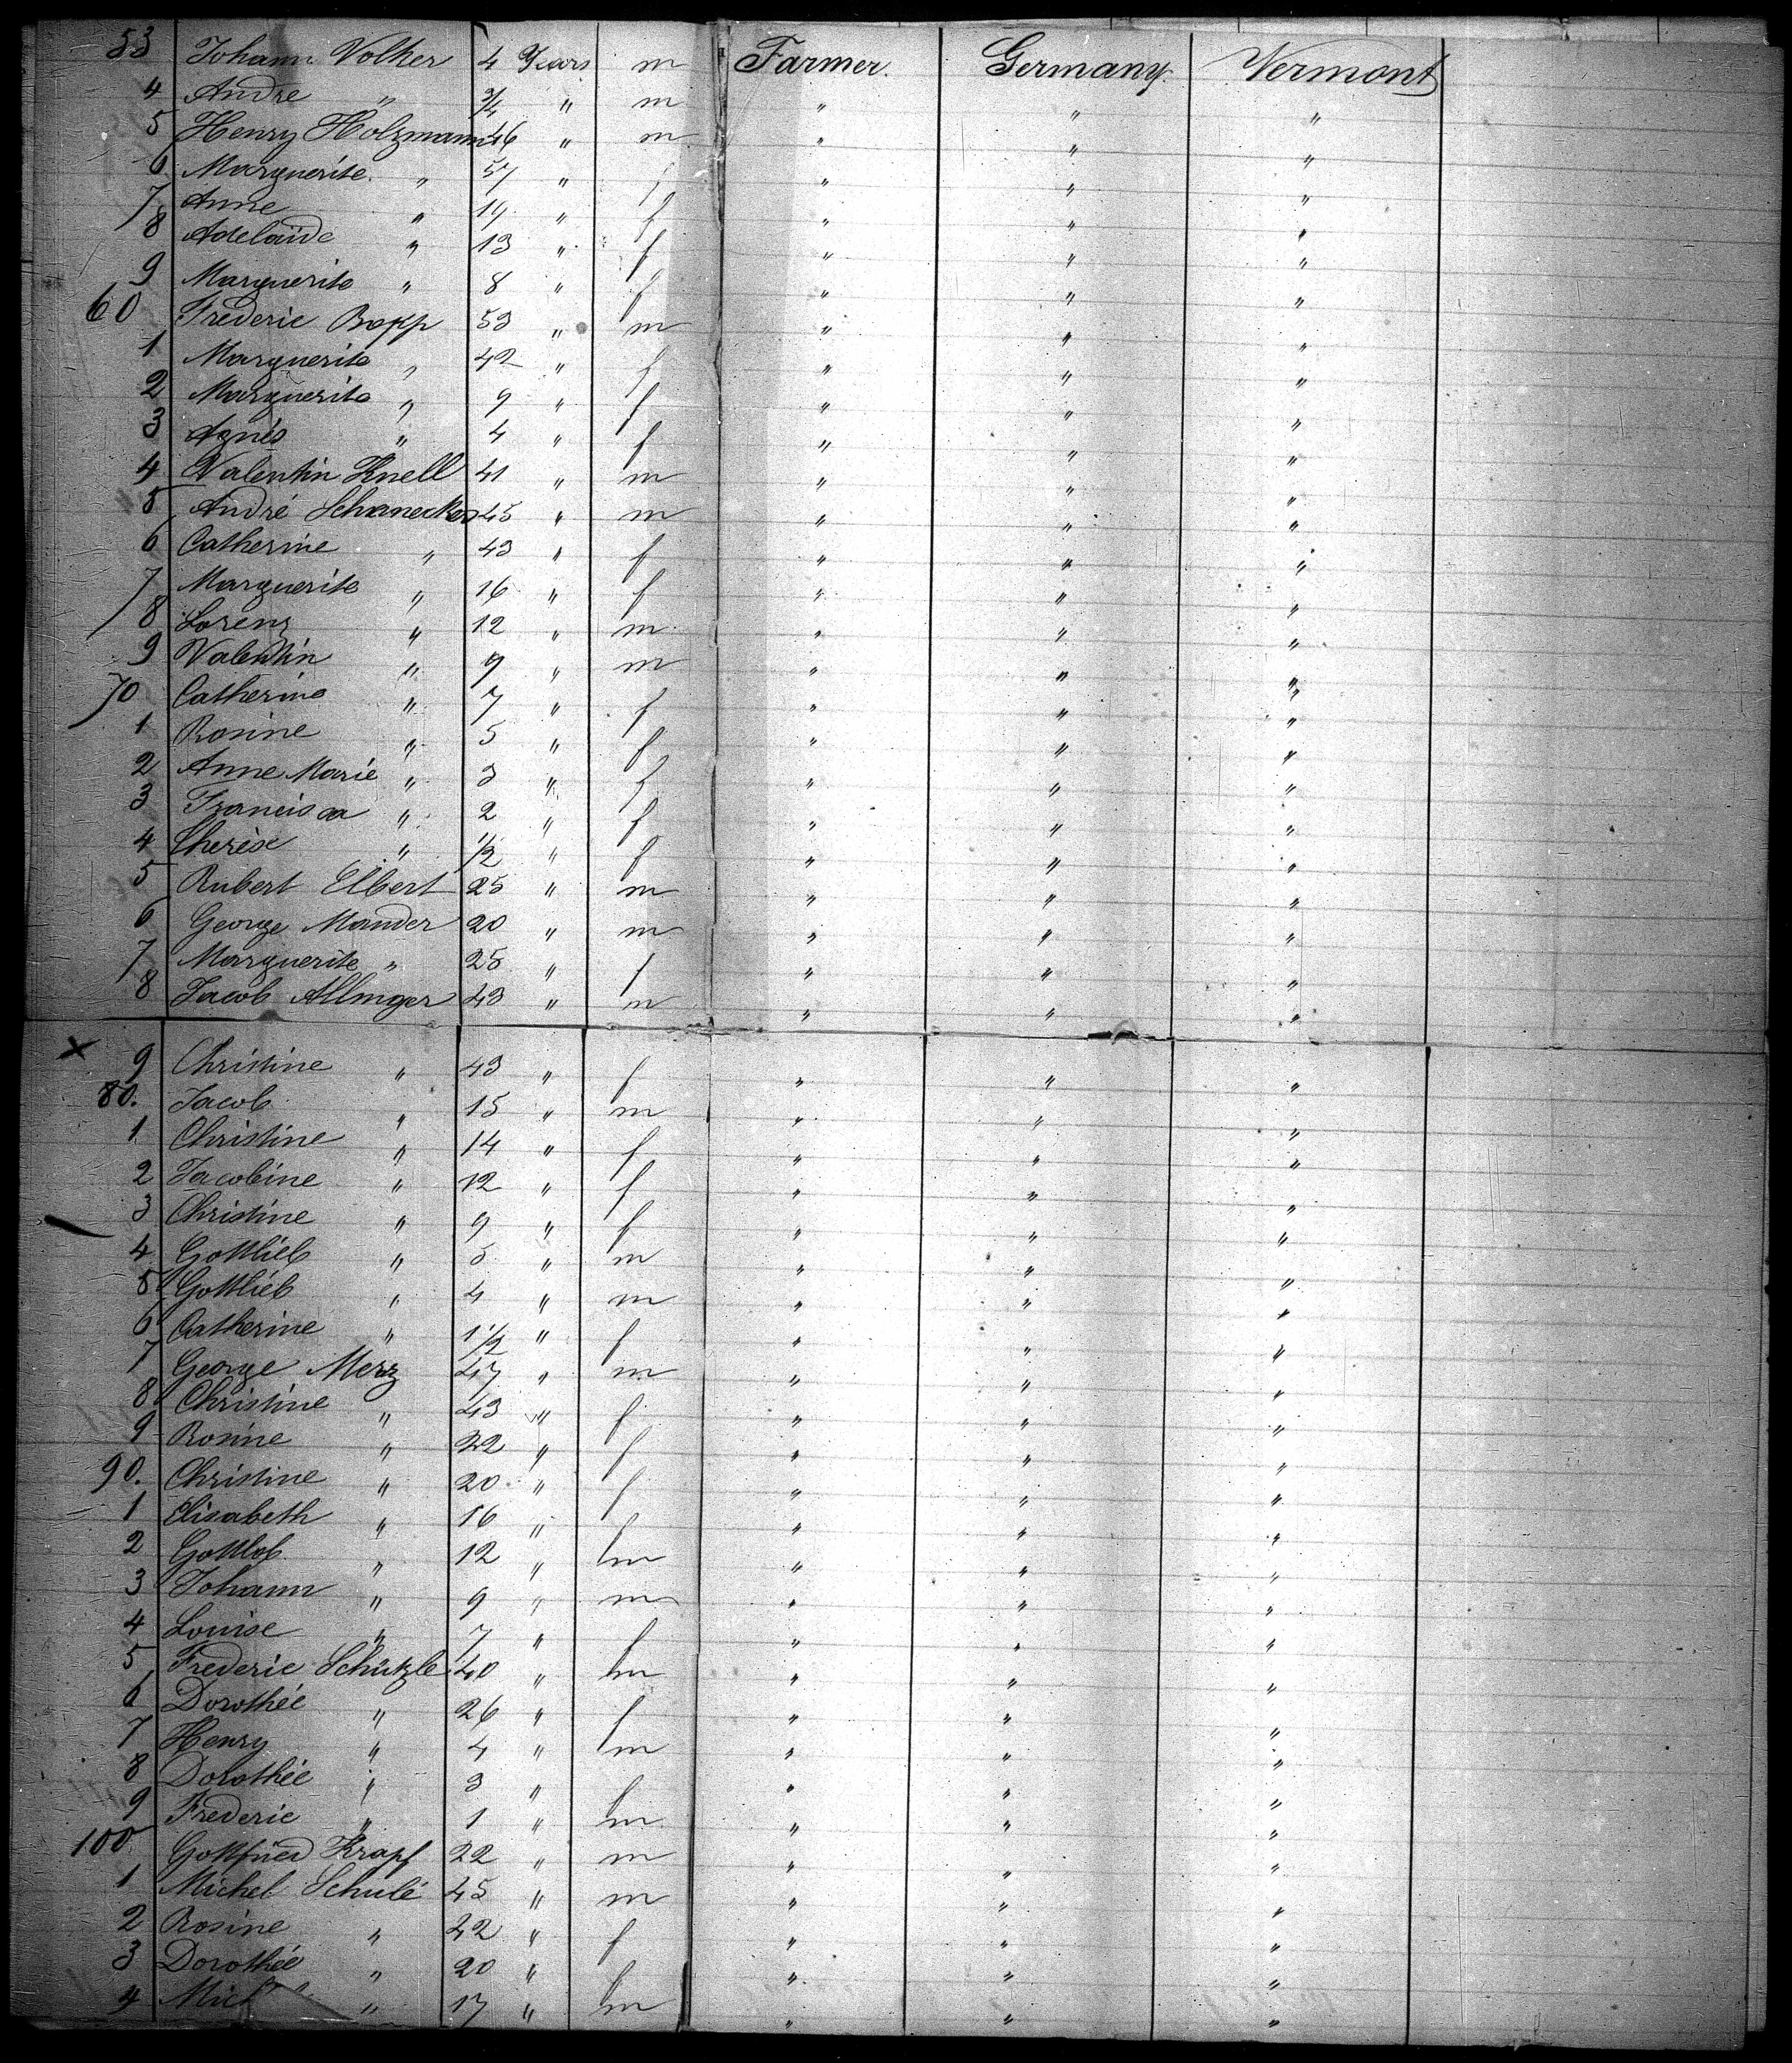 53 Johann Volker 4 Years m Farmer. Germany. Vermont
4 André " 3/4 " m " " "
5 Henry Hölzmann 46 " m " " "
6 Marguerite " 51 " f " " "
7 Anne " 19 " f " " "
8 Adelaïde " 13 " f " " "
9 Marguerite " 8 " f " " "
60 Frederic Bopp 53 " m " " "
1 Marguerite " 42 " f " " "
2 Marguerite " 9 " f " " "
3 Agnés " 4 " f " " "
4 Valentin Knell 41 " m " " "
5 André Schanecker 45 " m " " "
6 Catherine " 43 " f " " "
7 Marguerite " 16 " f " " "
8 Lorenz " 12 " m " " "
9 Valentin " 9 " m " " "
70 Catherine " 7 " f " " "
1 Rosine " 5 " f " " "
2 Anne Marie " 3 " f " " "
3 Francisca " 2 " f " " "
4 Therèse " 1/2 " f " " "
5 Rubert Elbert 25 " m " " "
6 George Mander 20 " m " " "
7 Marguerite " 25 " f " " "
8 Jacob Allinger 43 " m " " "
x 9 Christine " 43 " f " " "
80. Jacob " 15 " m " " "
1 Christine " 14 " f " " "
2 Jacobine " 12 " f " " "
3 Christine " 9 " f " " "
4 Gottlieb " 5 " m " " "
5 Gottlieb " 4 " m " " "
6 Catherine " 1 1/2 " f " " "
7 George Merz 47 " m " " "
8 Christine " 43 " f " " "
9 Rosine " 22 " f " " "
90. Christine " 20 " f " " "
1 Elisabeth " 16 " f " " "
2 Gottlob " 12 " m " " "
3 Johann " 9 " m " " "
4 Louise " 7 " f " " "
5 Frederic Schützle 40 " m " " "
6 Dorothée " 26 " f " " "
7 Henry " 4 " m " " "
8 Dorothée " 3 " f " " "
9 Frederic " 1 " m " " "
100 Gottfried Krapf 22 " m " " "
1 Michel Schulé 45 " m " " "
2 Rosine " 42 " f " " "
3 Dorothée " 20 " f " " "
4 " 17 " m " " "